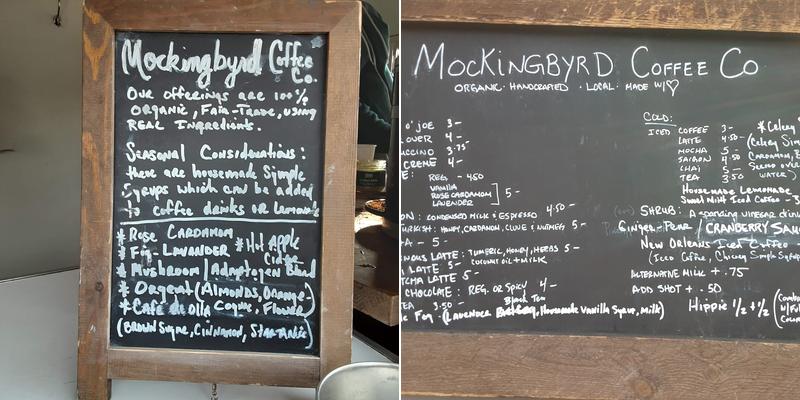 Mockingbyrd Coffee
Co.
Our offerings are 100%
Organic, Fair-Trade, using
Real Ingredients.
Seasonal Considerations:
there are housemade Simple
Syrups which can be added
to coffee drinks or Lemonade
* Rose Cardamom
* Fig-Lavander * Hot Apple
Cider
* Mushroom / Adaptogen Blend
* Orgeat (Almonds, Orange-
* Café de olla Cogne, Flower)
(Brown Sugar, Cinnamon, Star-Anise)
Mockingbyrd Coffee Co
Organic · Handcrafted · Local · Made w/ ♡
o' Joe 3-
over 4-
ccino 3.75
creme 4-
e: Reg. - 450
Vanilla
Rose Cardamom
Lavender
5-
on: Condensed Milk & Espresso 4.50
urkish: Honey, Cardamom, Clove & Nutmeg 5-
ta - 5-
nous Latte: Tumeric, Honey, Herbs 5-
Coconut Oil + Milk
Latte 5-
tcha Latte 5-
Chocolate: Reg. or Spicy 4-
tea 3.50 -
Black Tea
Fog - (Lavender, Housemade Vanilla Syrup, Milk)
Cold:
Iced Coffee 3-
Latte 4.50-
Mocha 5-
Saigon 4.50
Chai 5-
Tea 3.50
* Celery
(Celery Sim
Cardamom, E
Served over
water)
Housemade Lemonade
Sweet Mint Iced Coffee - 5
Shrub: A spending vinegar drink
Ginger-Pear / Cranberry Sau
New Orleans Iced Coffee
(Iced Coffee, Chicory Simple Syrup
Alternative Milk + .75
Add Shot + .50
Hippie 1/2 + 1/2
(Comb
w/ Ful
Cocon